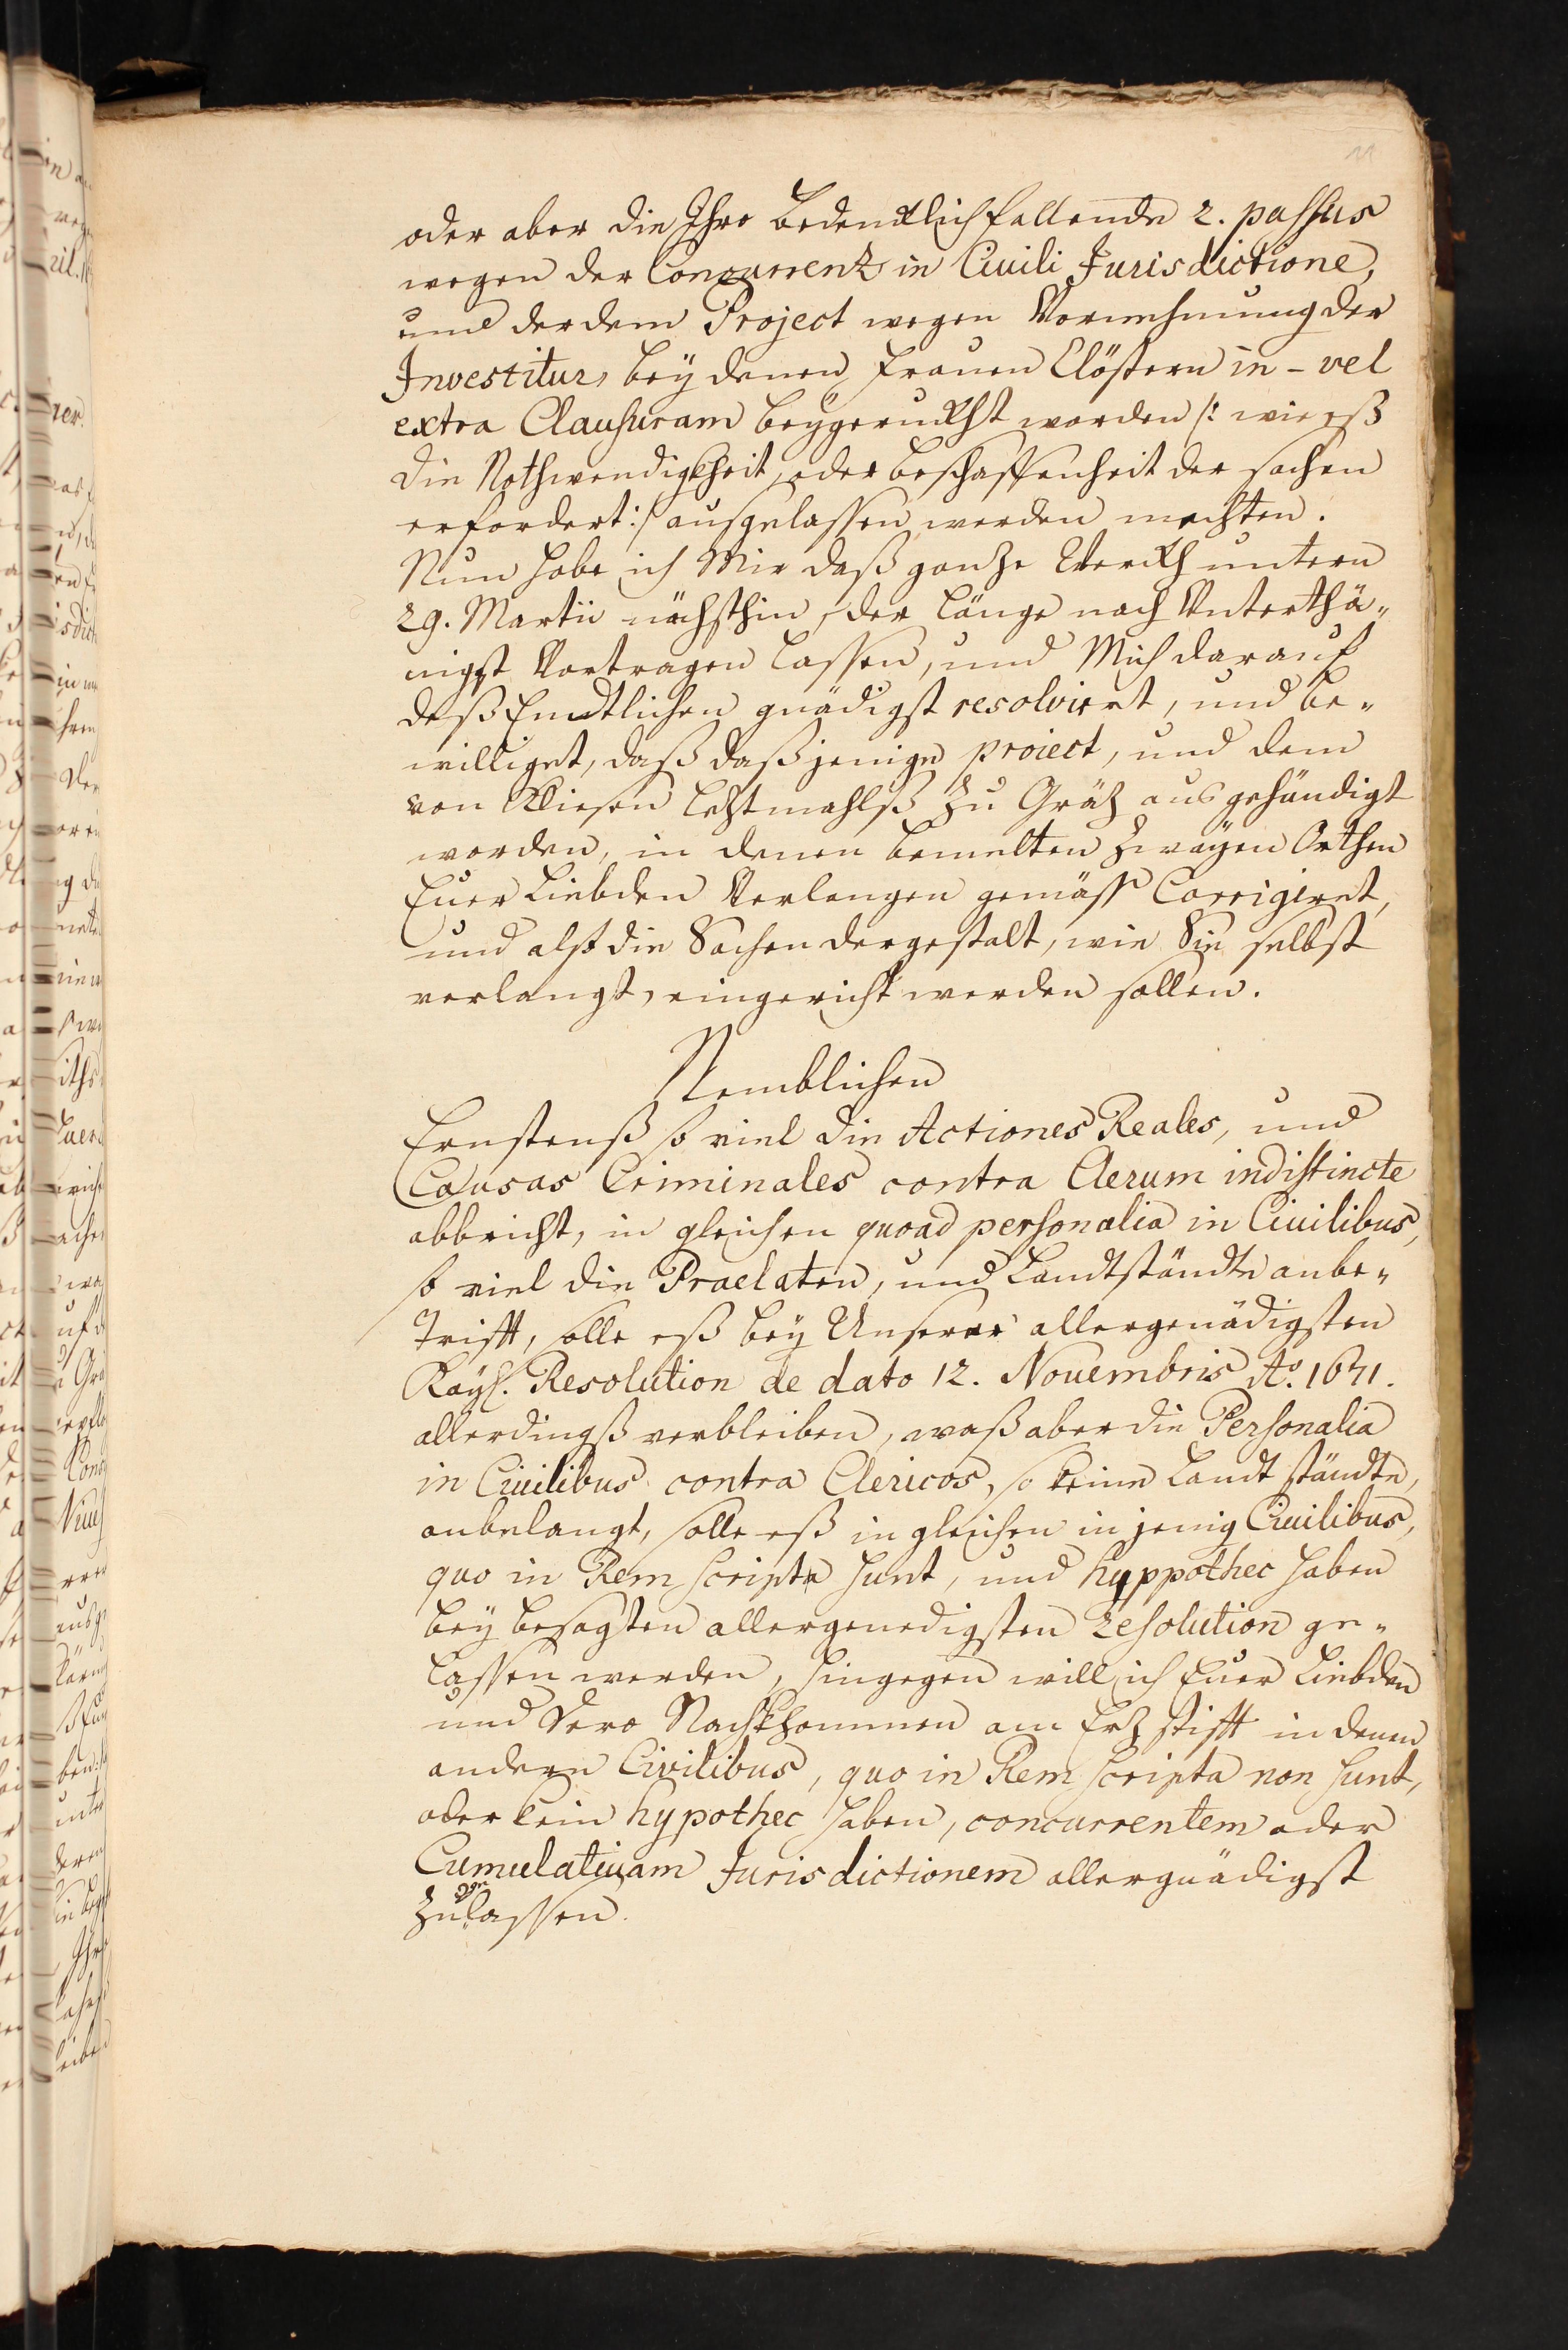 11
oder aber die Ihro bedencklich fallende 2. passus
wegen der Concurrenz in Ciuili Jurisdictione,
und der dem Project wegen Vornehmung der
Investitur, bey denen frauen Clöstern in - vel
extra Clausuram beygeruckht worden /: wie eß
die Nothwendigkheit, oder beschaffenheit der sachen
erfordert :/ ausgelassen werden mechten.
Nun habe ich Mir daß ganze Werckh untern
29. Martii nächsthin, der länge nach Unterthä„
nigst Vortragen lassen, und Mich darauf
deß Endtlichen gnädigst resolviert, und be„
williget, daß daßjenige proiect, und dem
von Wiesen leztmahlß zu Gräz ausgehändigt
worden, in denen bemelten zwayen Orthen
Euer Liebden Verlangen gemäss Corrigiret,
und alß die Sachen dergestalt, wie Sie selbst
verlangt, eingericht werden sollen.
Nemblichen
Erstenß so viel die Actiones Reales, und
Causas Criminales contra Clerum indistincte
abbricht, in gleichen quoad personalia in Ciuilibus,
so viel die Praelaten, und Landtständte anbe„
trifft, solle eß bey Unserer allergenädigsten
Kayß. Resolution de dato 12. Nouembris Ao. 1631.
allerdingß verbleiben, waß aber die Personalia
in Ciuilibus contra Clericos, so keine Landt ständte,
anbelangt, solle eß in gleichen in jenig Ciuilibus,
quo in Rem scripta sunt, und hyppothec haben
bey besagten allergenedigsten resolution ge„
lassen werden, hingegen will ich Euer Liebden
und dero Nachkhommen am Erz stifft in denen
andern Civilibus, quo in Rem scripta non sunt,
oder kein hypothec haben, concurrentem oder
Cumulatiuam Jurisdictionem allergnädigst
zulassen.